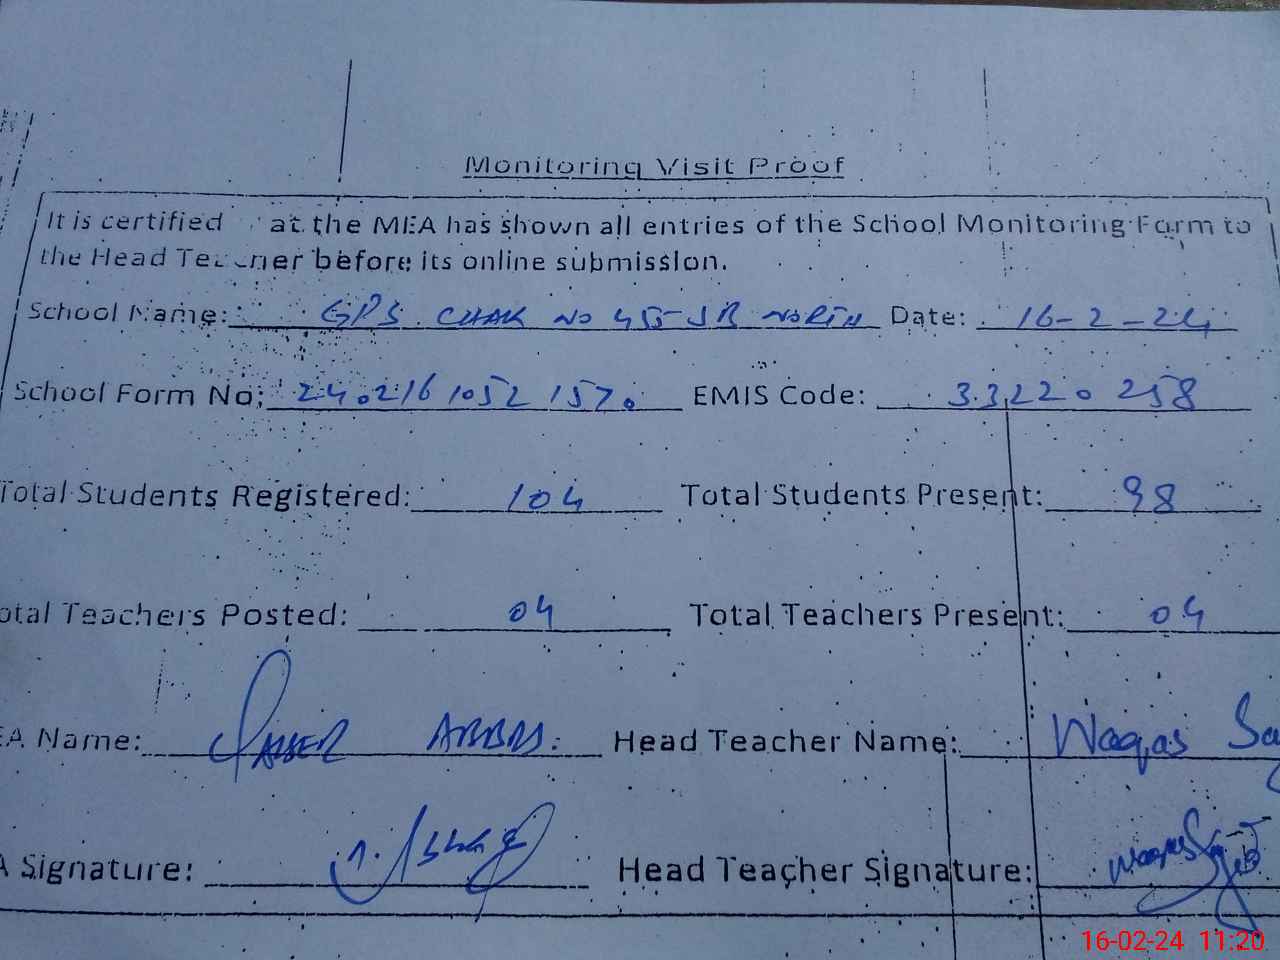 Monitoring Visit Proof
It is certified at the MEA has shown all entries of the School Monitoring Form to
the Head Teacher before its online submission.
School Name: GPS CHAK NO 455-JB NORTH Date: 16-2-24
School Form No: 240216 1052 1570 EMIS Code: 33220258
Total Students Registered: 104 Total Students Present: 98
otal Teachers Posted: 04 Total Teachers Present: 04
EA Name: ABBAS. Head Teacher Name: Waqas
A Signature: Head Teacher Signature: Waqas
16-02-24 11:20